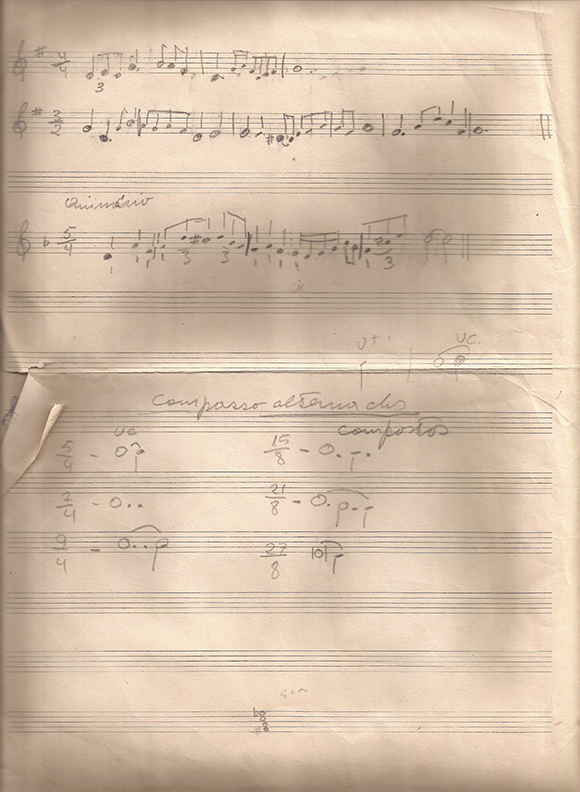 4/4
3
3/2
Quinário
5/4
3 3 3
UT UC
Compasso alternados
compostos
UC
5/4 - 15/8 -
7/4 - 21/8 -
9/4 - 27/8